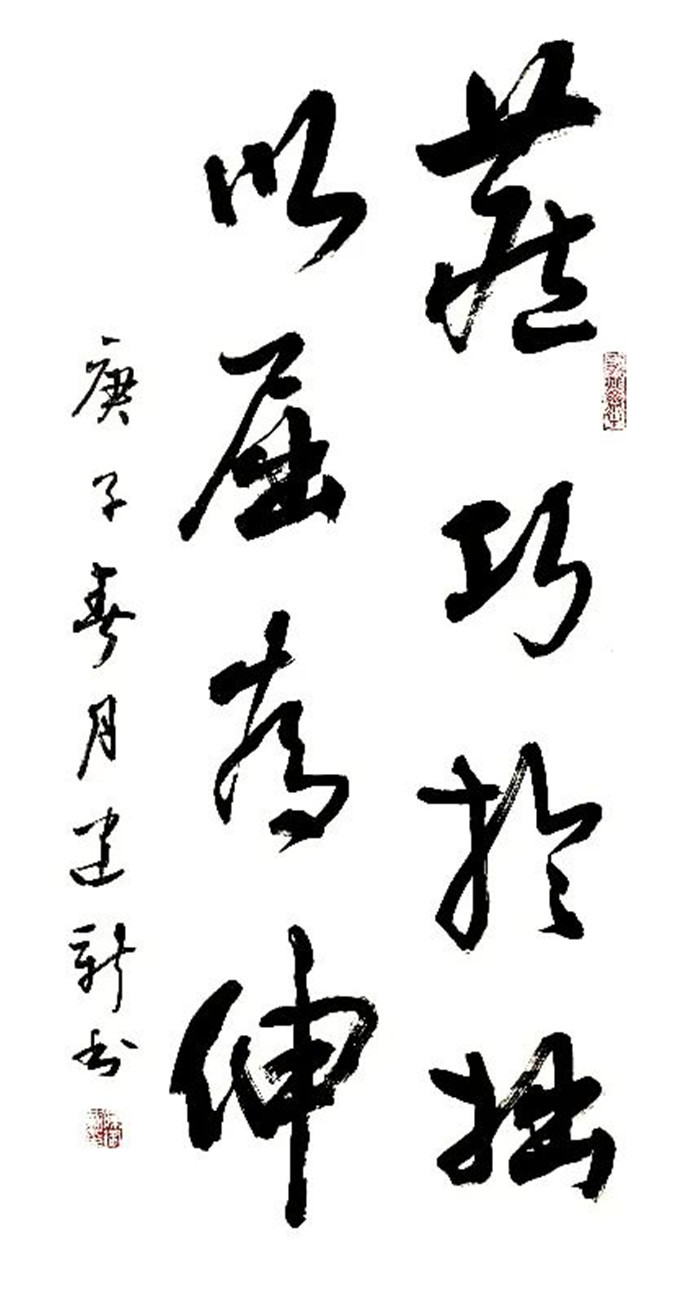 藏巧於拙
以屈為伸
庚子春月建新书